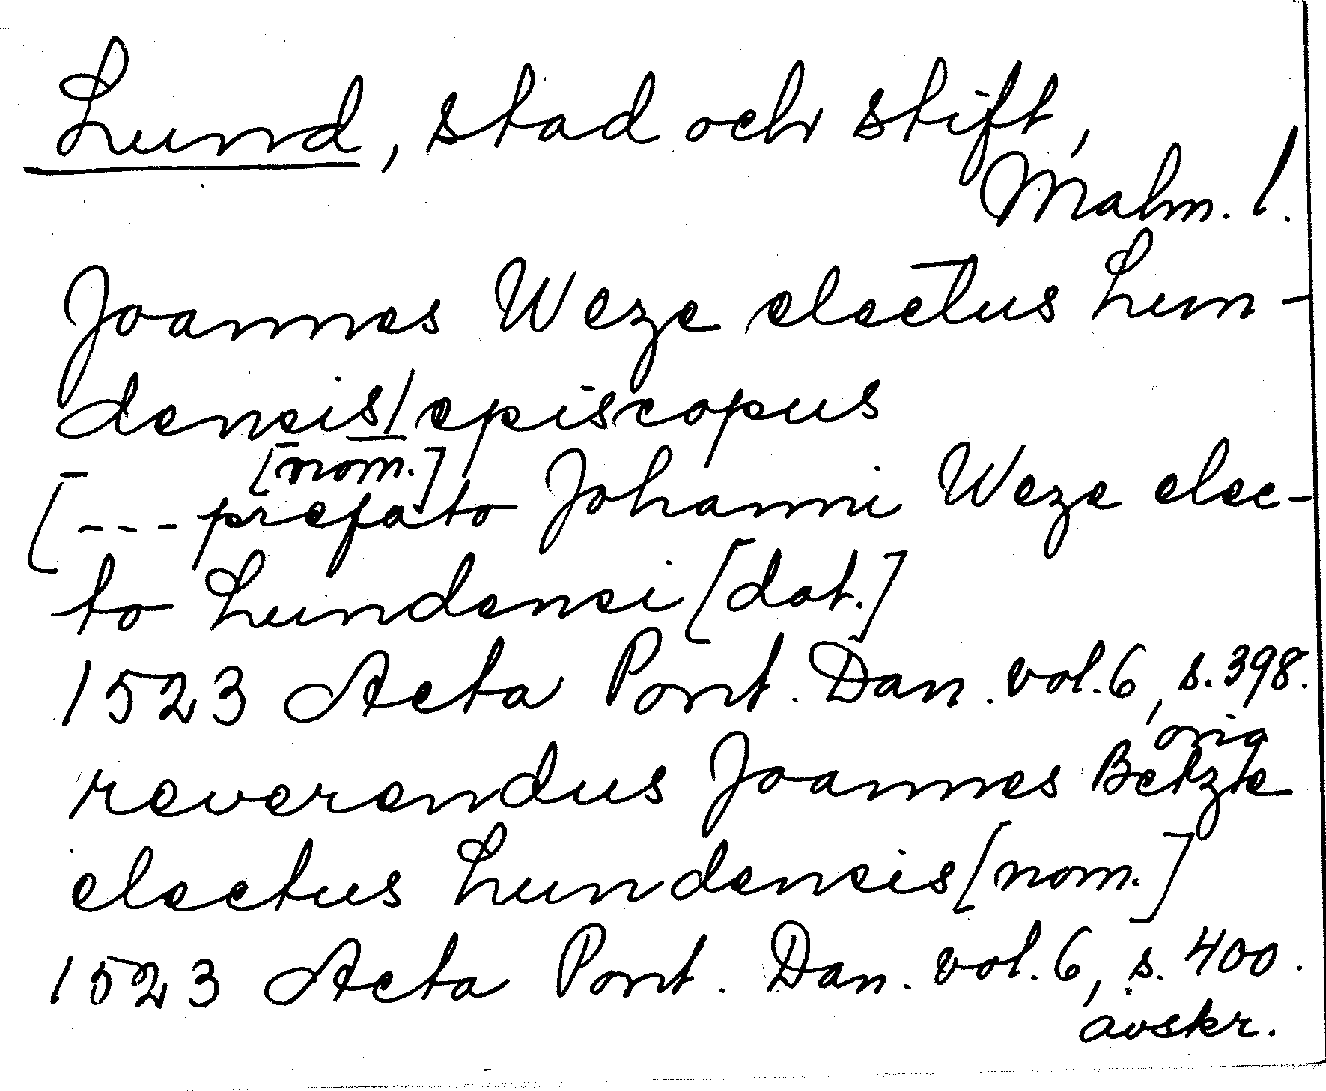 Lund, stad och stift,
Malm. l.
Joannes Weze electus Lun-
densis/episcopus
[nom.]
[--- prefato Johanni Weze elec-
to Lundensi [dat.]
1523 Acta Pont. Dan. vol. 6, s. 398.
orig
reverendus Joannes Betze
electus Lundensis [nom.]
1523 Acta Pont. Dan. vol. 6, s. 400.
avskr.